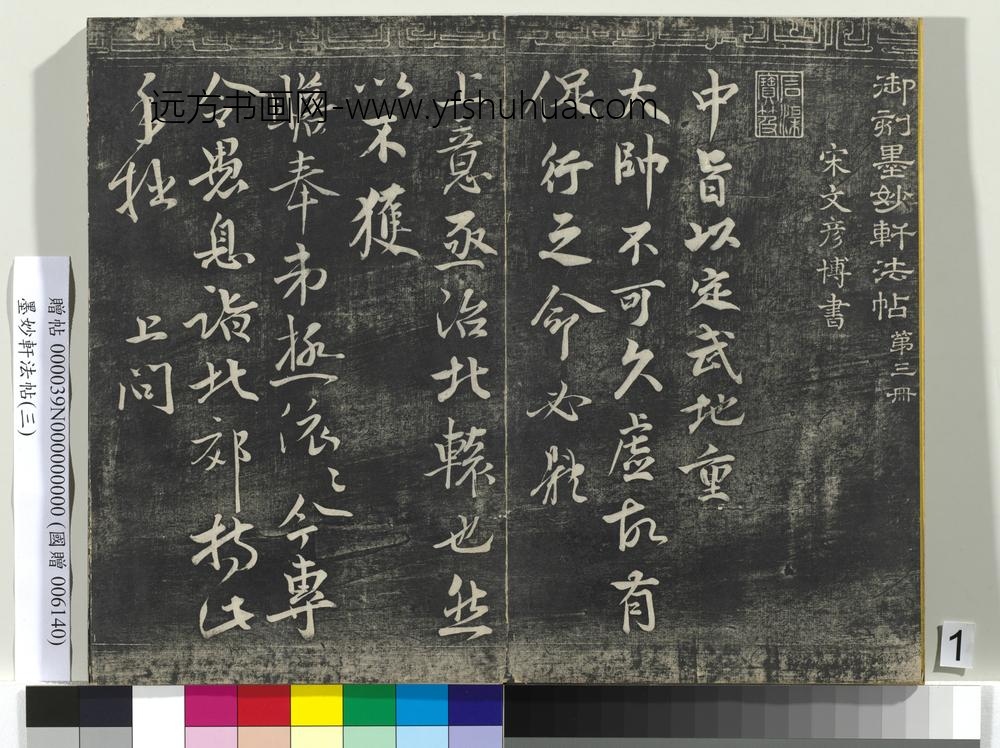 御刻墨妙軒法帖 第三冊
宋文彥博書
中旨以定武地重
大帥不可久虛故有
促行之命必疑
上意亟治北轅也然
以未獲
瞻奉弟極依依今專
令愚息詣北郊持此
手狀 上問
远方书画网-www.yfshuhua.com
贈帖 000039N000000000 (國贈 006140)
墨妙軒法帖(三)
1